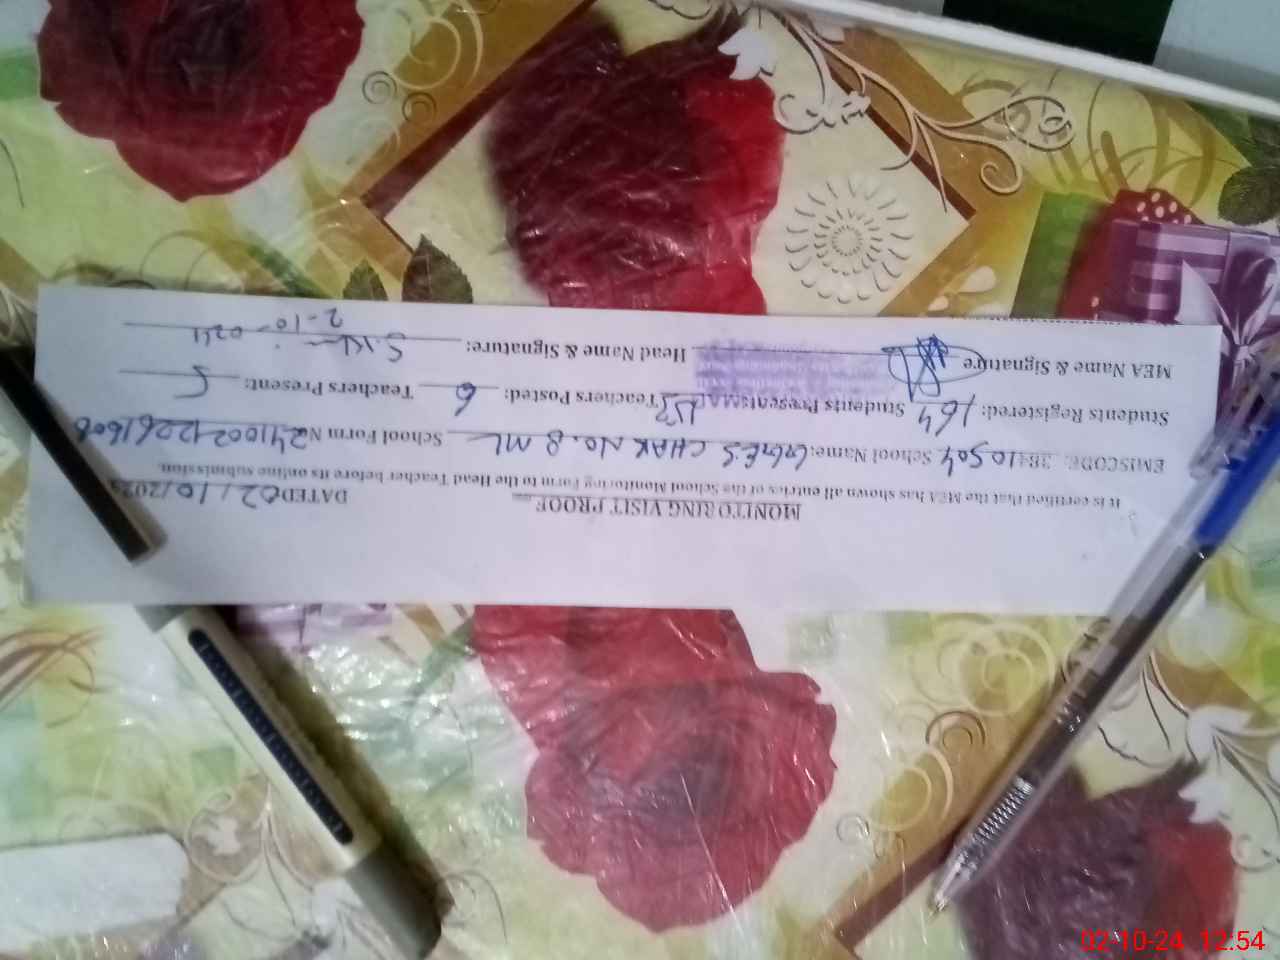 MONITORING VISIT PROOF
DATED 02/10/202
It is certified that the MEA has shown all entries of the School Monitoring Form to the Head Teacher before its online submission.
EMISCODE: 38410504 School Name: CHAK NO. 8 ML School Form N 24100242261608
Students Registered: 164 Students Present: 153 Teachers Posted: 6 Teachers Present: 5
MEA Name & Signature Head Name & Signature:
2-10-024
02-10-24 12:54